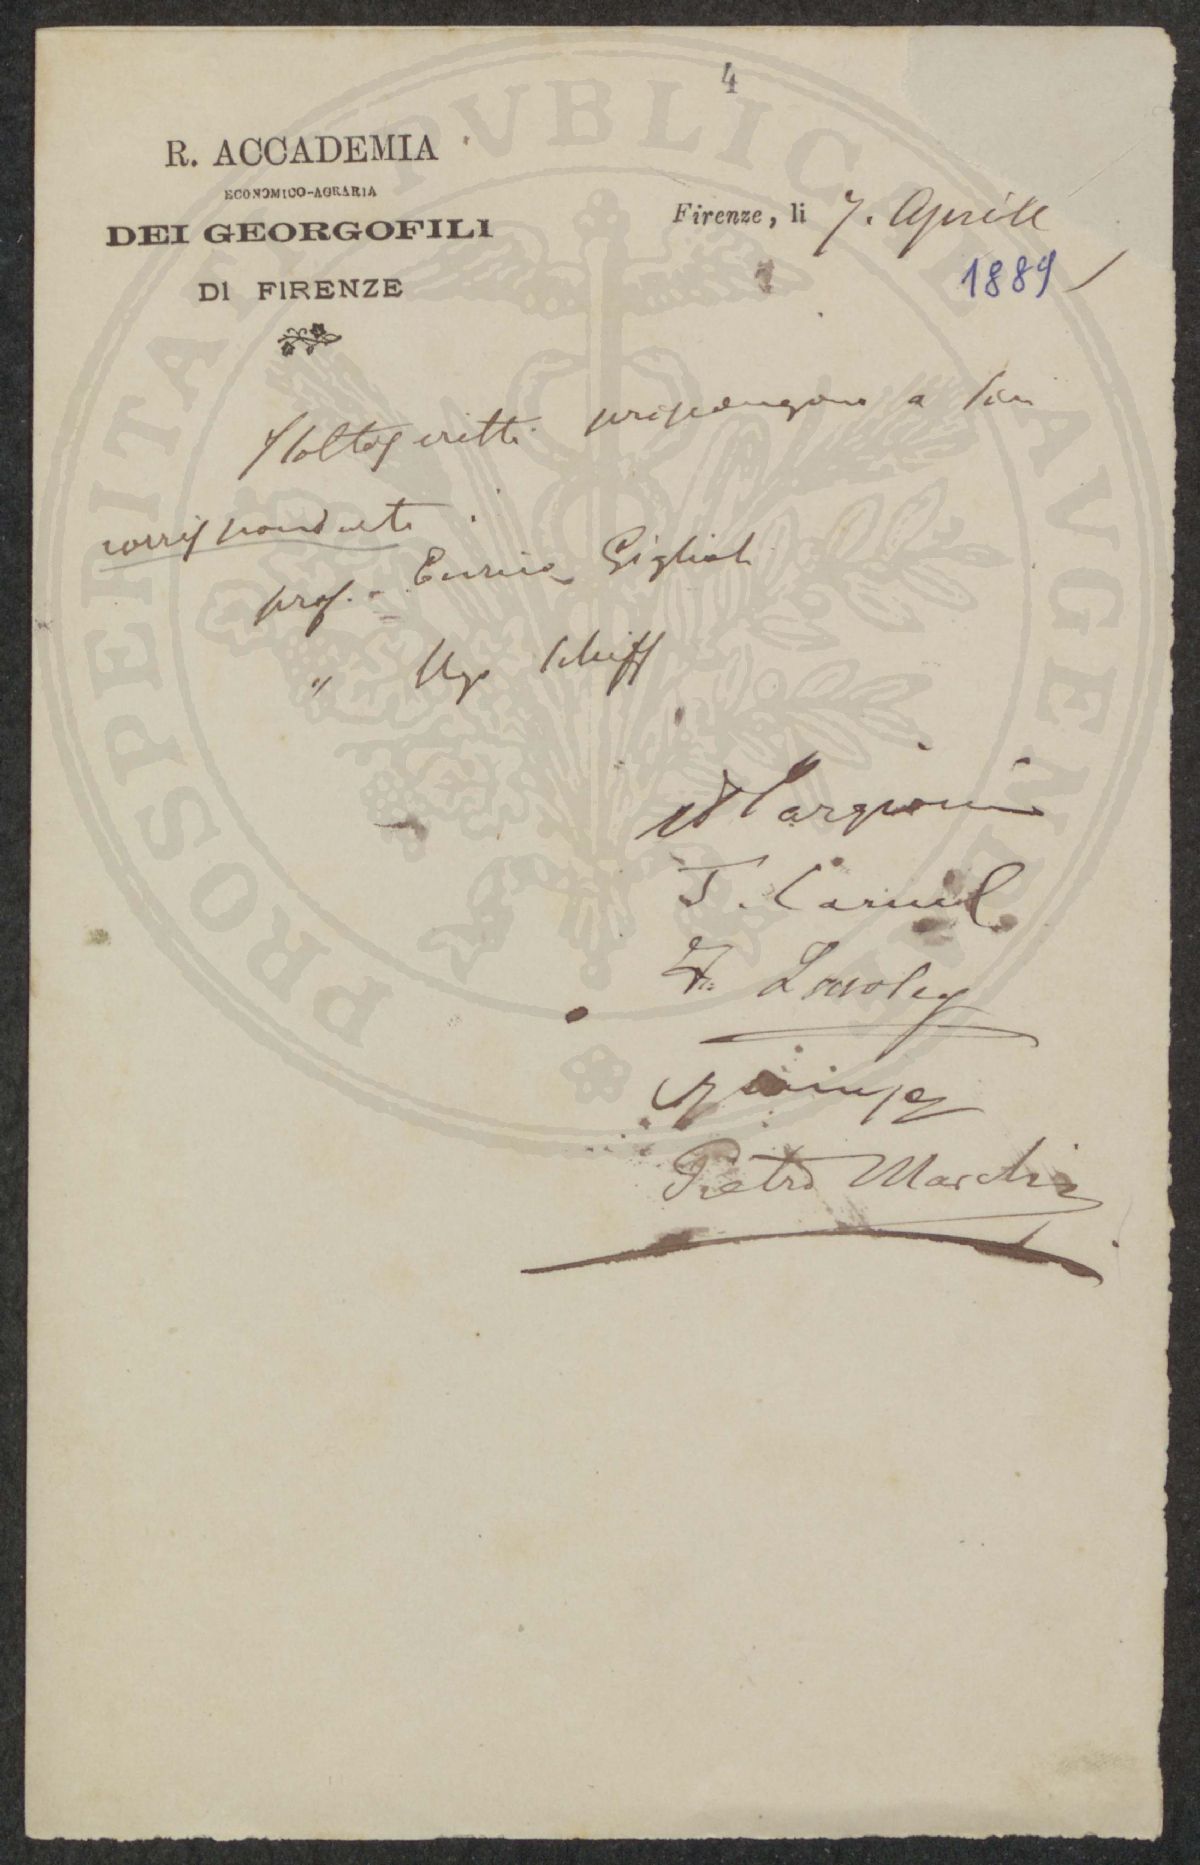 4
R. ACCADEMIA
ECONOMICO-AGRARIA
DEI GEORGOFILI
DI FIRENZE
Firenze, li 7. Aprile
1889
I sottoscritti propongono a soci
corrispondenti
prof. Enrico Giglioli
" Ugo Schiff
Targioni
T. Caruel
Pietro Marchi
PROSPERITATI PVBLICAE AVGENDAE